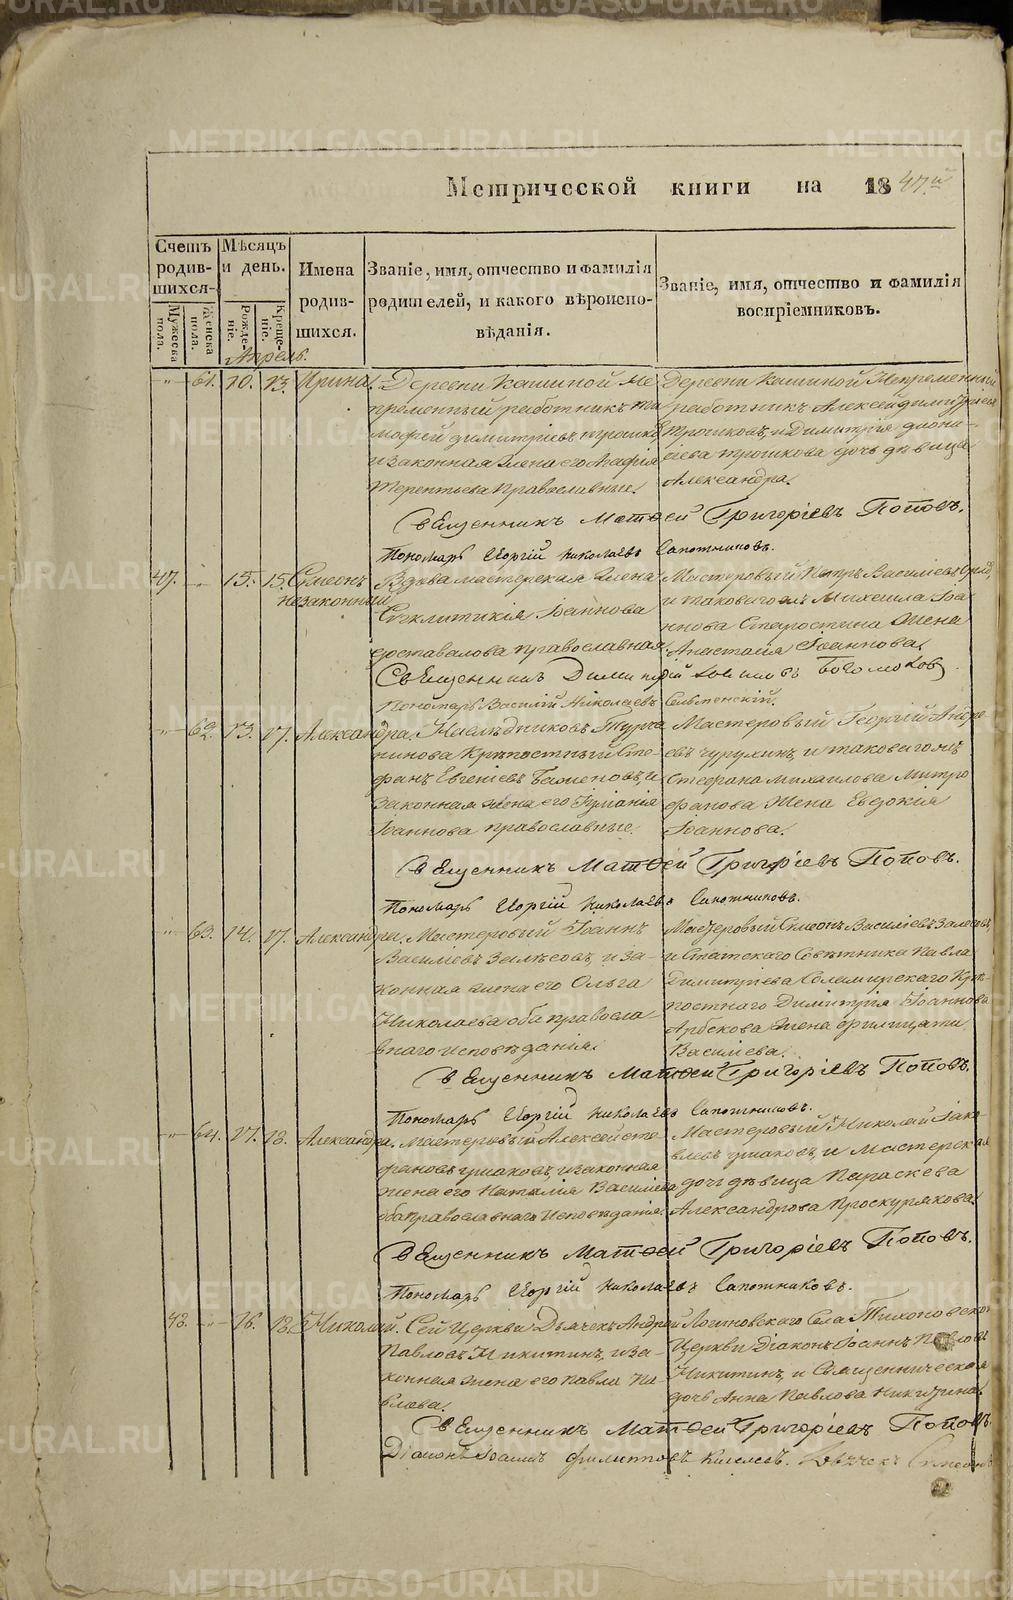 METRIKI.GASO-URAL.RU
Метрической книги на 1847й
Счетъ родив-шихся.
Мѣсяцъ и день.
Имена родив-шихся.
Званіе, имя, отчество и фамилія родителей, и какого вѣроиспо-вѣданія.
Званіе, имя, отчество и фамилія воспріемниковъ.
Мужеска пола.
Женска пола.
Рожде-ніе.
Креще-ніе.
Апрель.
" 61. 10. 13. Ирина.
Деревни Кашиной Не-
пременный работникъ Ти
мофей Димитріевъ Трошковъ,
и законная жена его Агафія
Терентьева Православные.
Деревни Кашиной Непременный
работникъ Алексей Димитріевъ
Трошковъ, и Димитрія Діони-
сіева Трошкова дочь дѣвица
Александра.
Священникъ Матѳей Григоріевъ Поповъ.
Пономарь Георгій Николаевъ Сапожниковъ.
47. " 15. 15. Симеонъ
незаконный
Вдова мастерская жена
Синклитикія Іоаннова
Доставалова православная
Мастеровый Петръ Василіевъ
и таковаго Михаила Іоа
ннова Старостина жена
Анастасія Іоаннова.
Священникъ Димитрій Богомоловъ
Пономарь Василій Николаевъ Селменскій.
" 62. 13. 17. Александра.
Наслѣдниковъ Турча
нинова Крѣпостный Сте
фанъ Евгеніевъ Баженовъ, и
законная жена его Іуліанія
Іоаннова православные.
Мастеровый Георгій Андре
евъ Чурулинъ, и таковаго
Стефана Михаилова Митро
фанова жена Евдокія
Іоаннова.
Священникъ Матѳей Григоріевъ Поповъ.
Пономарь Георгій Николаевъ Сапожниковъ.
" 63. 14. 17. Александра.
Мастеровый Іоаннъ
Василіевъ Залѣсовъ, и за-
конная жена его Ольга
Николаева оба правосла-
внаго исповѣданія.
Мастеровый Симеонъ Василіевъ Залесовъ,
и Статскаго Совѣтника Павла
Димитріева Соломирскаго Крѣ-
постнаго Димитрія Іоаннова
Арбекова жена Филицата
Василіева.
Священникъ Матѳей Григоріевъ Поповъ.
Пономарь Георгій Николаевъ Сапожниковъ.
" 64. 17. 18. Александра.
Мастеровый Алексей Сте-
фановъ Ушаковъ, и законная
жена его Наталія Василіева
оба Православнаго Исповѣданія.
Мастеровый Николай Іако-
влевъ Ушаковъ, и Мастерская
дочь дѣвица Параскева
Александрова Проскурякова.
Священникъ Матѳей Григоріевъ Поповъ.
Пономарь Георгій Николаевъ Сапожниковъ.
48. " 16. 18. Николай.
Сей Церкви Дьячекъ Андрей
Павловъ Никитинъ, и за-
конная жена его Павла Па-
влова.
Логиновскаго Села Тихоновской
Церкви Діаконъ Іоаннъ Павловъ
Никитинъ, и Священническая
дочь Анна Павлова Никитина.
Священникъ Матѳей Григоріевъ Поповъ.
Діаконъ Іоаннъ Филипповъ Киселевъ. Дьячекъ Симеонъ